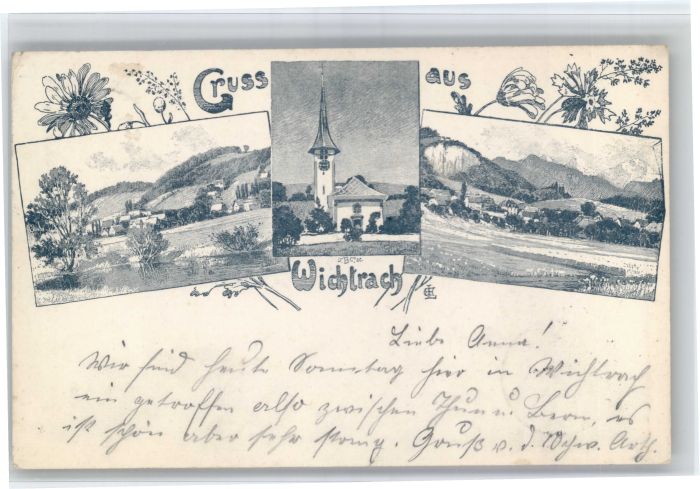 Gruss aus
Wichtrach
Liebe Anna!
Wir sind heute Sonntag hier in Wichtrach
ein getroffen also zwischen Thun u. Bern, es
ist schön aber sehr . Gruß v. d. Schw.